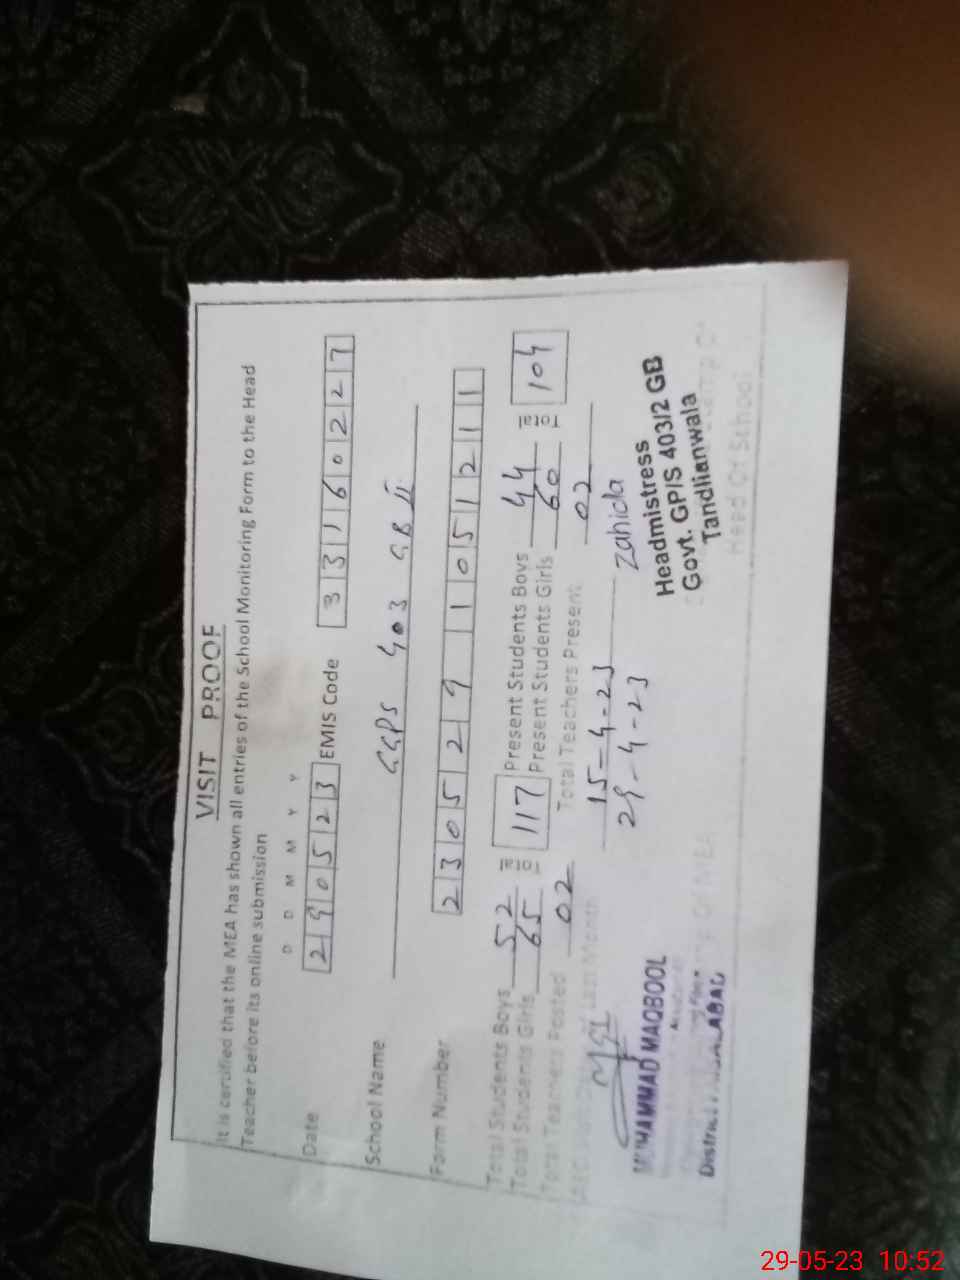 VISIT PROOF
It is certified that the MEA has shown all entries of the School Monitoring Form to the Head
Teacher before its online submission
D D M M Y Y
Date 290523 EMIS Code 33160227
School Name GGPS 403 GB II
Form Number 230522911051211
Total Students Boys 52 Total 117 Present Students Boys 44 Total 104
Total Students Girls 65 Present Students Girls 60
Total Teachers Posted 02 Total Teachers Present 02
Last Month 15-4-23
29-4-23
zahida
MUHAMMAD MAQBOOL
District
Of MEA
Headmistress
Govt. GP/S 403/2 GB
Tandlianwala
Head Of School
29-05-23 10:52